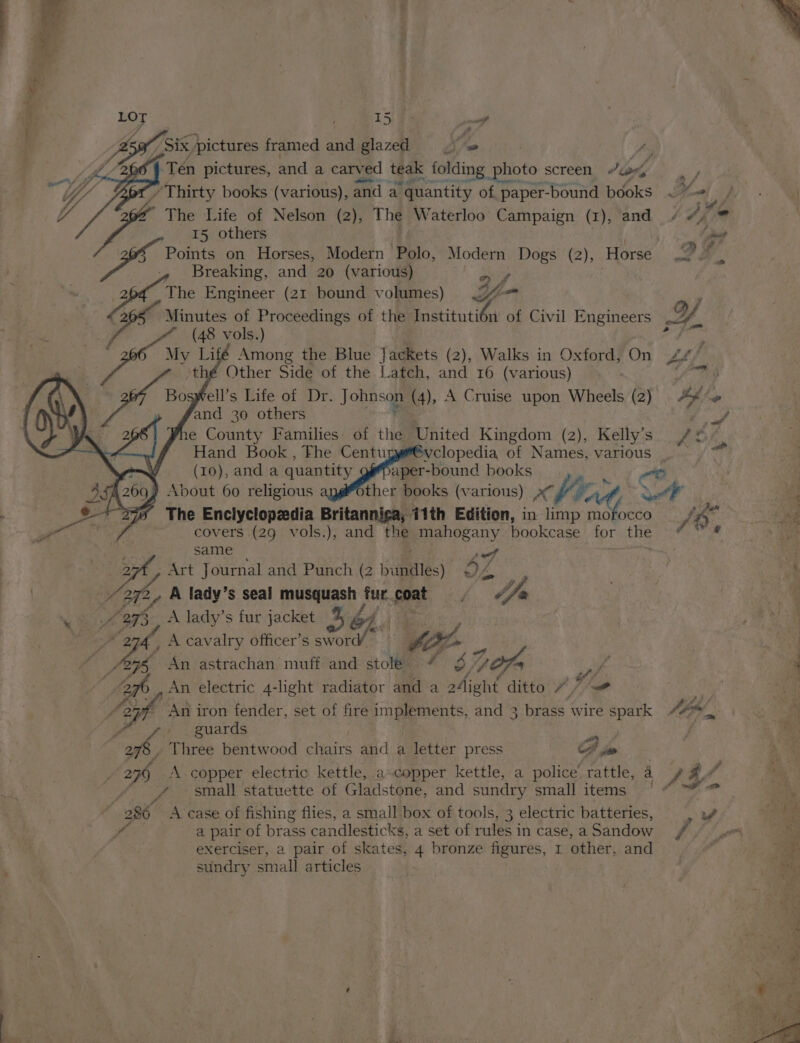 LOT 15
259 Six pictures framed and glazed
260 Ten pictures, and a carved teak folding photo screen
261 Thirty books (various), and a quantity of paper-bound books
262 The Life of Nelson (2), The Waterloo Campaign (1), and
15 others
263 Points on Horses, Modern Polo, Modern Dogs (2), Horse
Breaking, and 20 (various)
264 The Engineer (21 bound volumes)
265 Minutes of Proceedings of the Institution of Civil Engineers
(48 vols.)
266 My Life Among the Blue Jackets (2), Walks in Oxford, On
the Other Side of the Latch, and 16 (various)
267 Boswell's Life of Dr. Johnson (4), A Cruise upon Wheels (2)
and 30 others
268 The County Families of the United Kingdom (2), Kelly's
Hand Book, The Century Cyclopedia of Names, various
(10), and a quantity of paper-bound books
269 About 60 religious and other books (various)
270 The Enclyclopædia Britannica, 11th Edition, in limp morocco
covers (29 vols.), and the mahogany bookcase for the
same
271 Art Journal and Punch (2 bundles)
272 A lady's seal musquash fur coat
273 A lady's fur jacket
274 A cavalry officer's sword
275 An astrachan muff and stole
276 An electric 4-light radiator and a 2-light ditto
277 An iron fender, set of fire implements, and 3 brass wire spark
guards
278 Three bentwood chairs and a letter press
279 A copper electric kettle, a copper kettle, a police rattle, a
small statuette of Gladstone, and sundry small items
280 A case of fishing flies, a small box of tools, 3 electric batteries,
a pair of brass candlesticks, a set of rules in case, a Sandow
exerciser, a pair of skates, 4 bronze figures, 1 other, and
sundry small articles